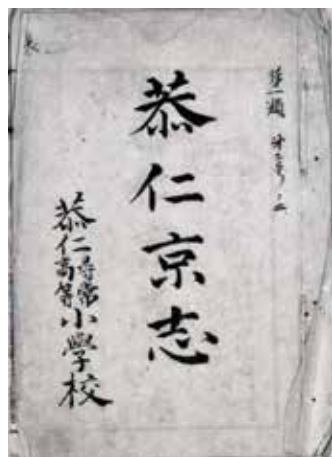 恭仁京志
恭仁尋常高等小學校